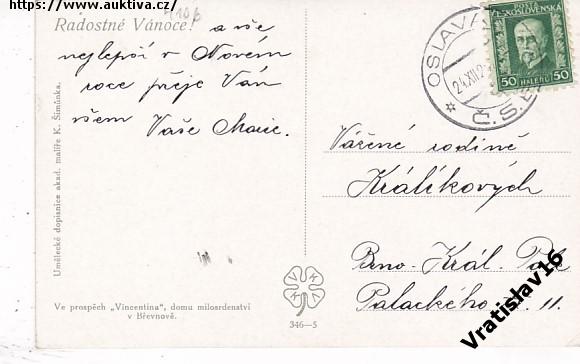 https://www.auktiva.cz/
Radostné Vánoce! a vše
nejlepší v Novém
roce přeje Vám
všem Vaše Marie.
Umělecké dopisnice akad. malíře K. Šimůnka.
Ve prospěch „Vincentina", domu milosrdenství
v Břevnově.
V K K V
346—5
POŠTA
ČESKOSLOVENSKÁ
50 HALÉŘŮ 50
OSLAVA
24.XII.2
Č.S.
Vážené rodině
Králíkových
Brno - Král. Pole
Palackého tř. 11.
Vratislav16